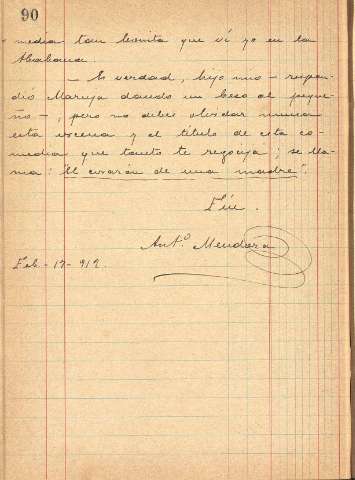 90
media tan bonita que ví yo en la
Habana.
— Es verdad, hijo mio — respon-
dió Maruja dando un beso al peque-
ño —, pero no debes olvidar nunca
esta escena y el título de esta co-
media que tanto te regocija; se lla-
ma: El corazón de una madre".
Fin.
Ant.º Mendoza
Feb - 17 - 919.